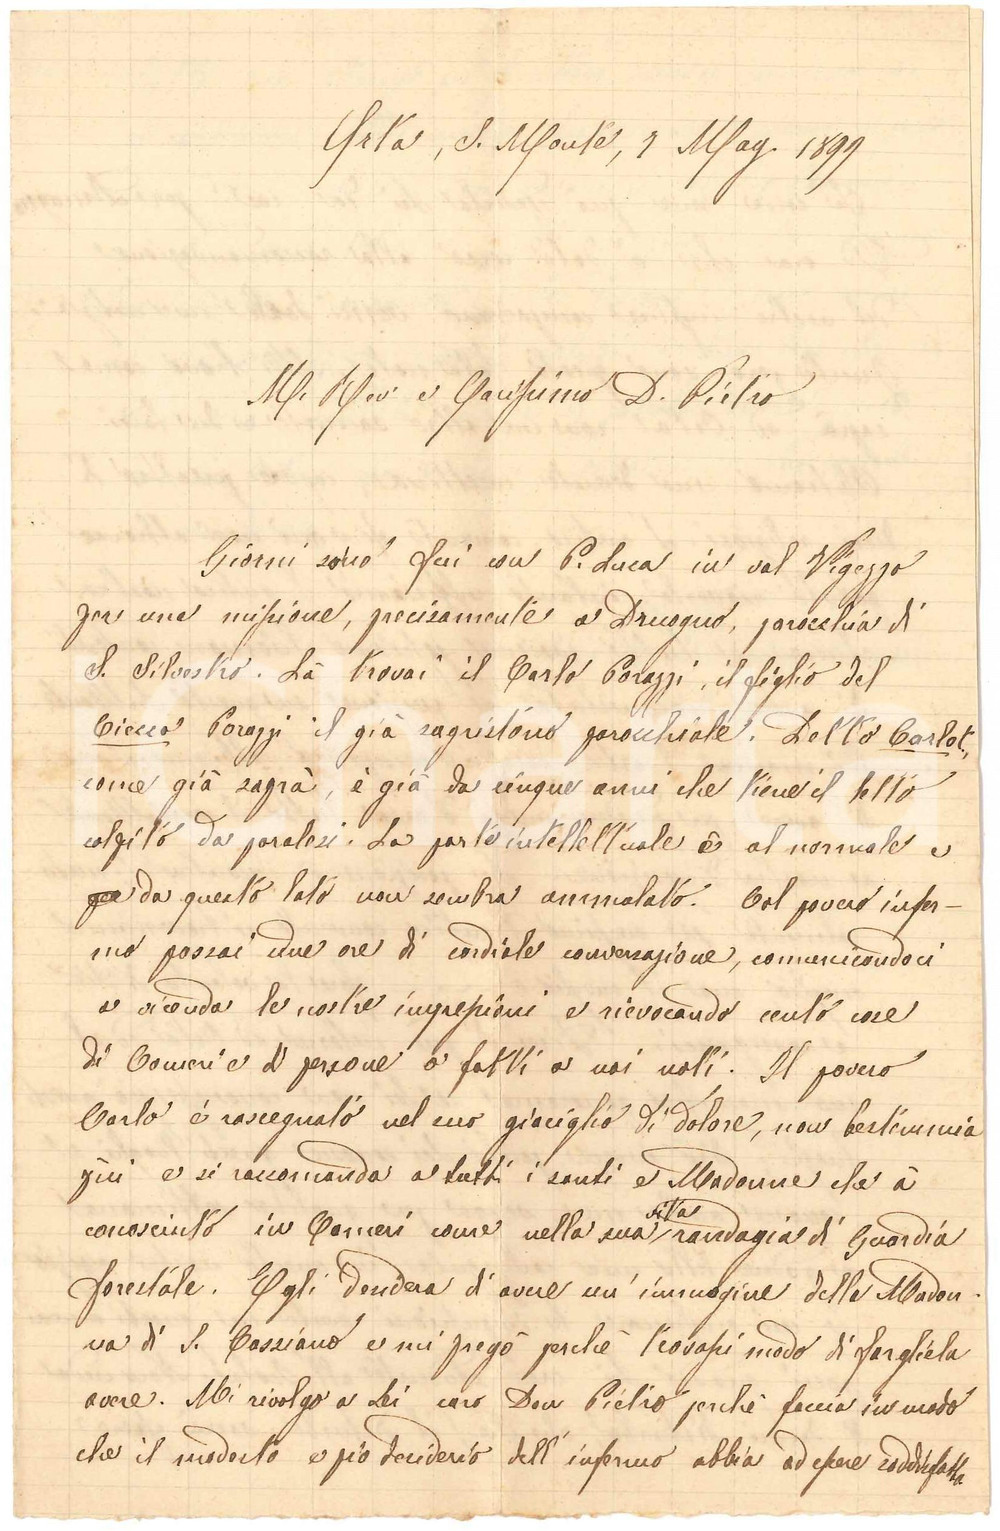 Orta, S. Monte, 7 Mag. 1899
M. Rev. e Carissimo D. Pietro
Giorni sono fui con P. Luca in val Vigezzo
per una missione, precisamente a Druogno, parocchia di
S. Silvestro. Là trovai il Carlo Porazzi, il figlio del
Ciecco Porazzi il già sagristano parocchiale. Detto Carlot,
come già saprà, è già da cinque anni che tiene il letto
colpito da paralesi. La parte intellettuale è al normale e
da questo lato non sembra ammalato. Col povero infer-
mo passai due ore di cordiale conversazione, comunicandoci
a vicenda le nostre impressioni e rievocando cento cose
di Cameri e di persone o fatti a noi noti. Il povero
Carlo è rassegnato nel suo giaciglio di dolore, non bestemmia
più e si raccomanda a tutti i santi e Madonne che à
conosciuto in Cameri come nella sua vita randagia di Guardia
forestale. Egli desidera di avere un'immagine della Madon-
na di S. Cassiano e mi pregò perchè trovassi modo di fargliela
avere. Mi rivolgo a Lei caro Don Pietro perchè faccia in modo
che il modesto e pio desiderio dell'infermo abbia ad essere soddisfatto